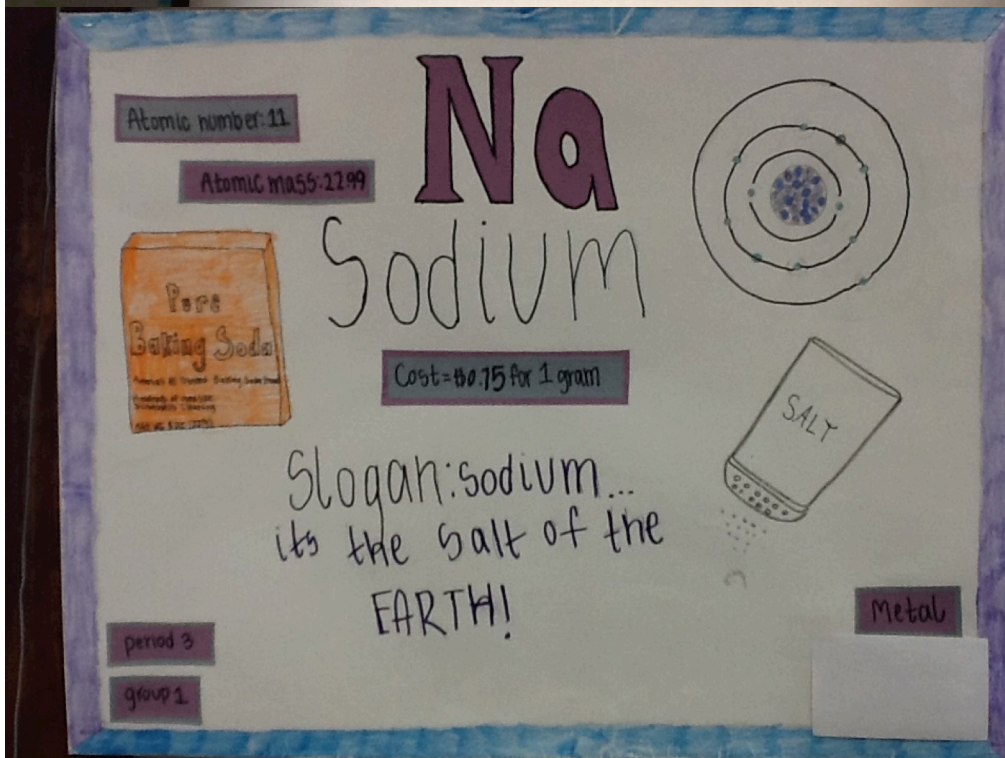 Na
Atomic number:11
Atomic mass:22.99
Sodium
Pure
Baking Soda
Cost=$0.75 for 1 gram
SALT
Slogan:sodium...
its the salt of the
EARTH!
Metal
period 3
group 1